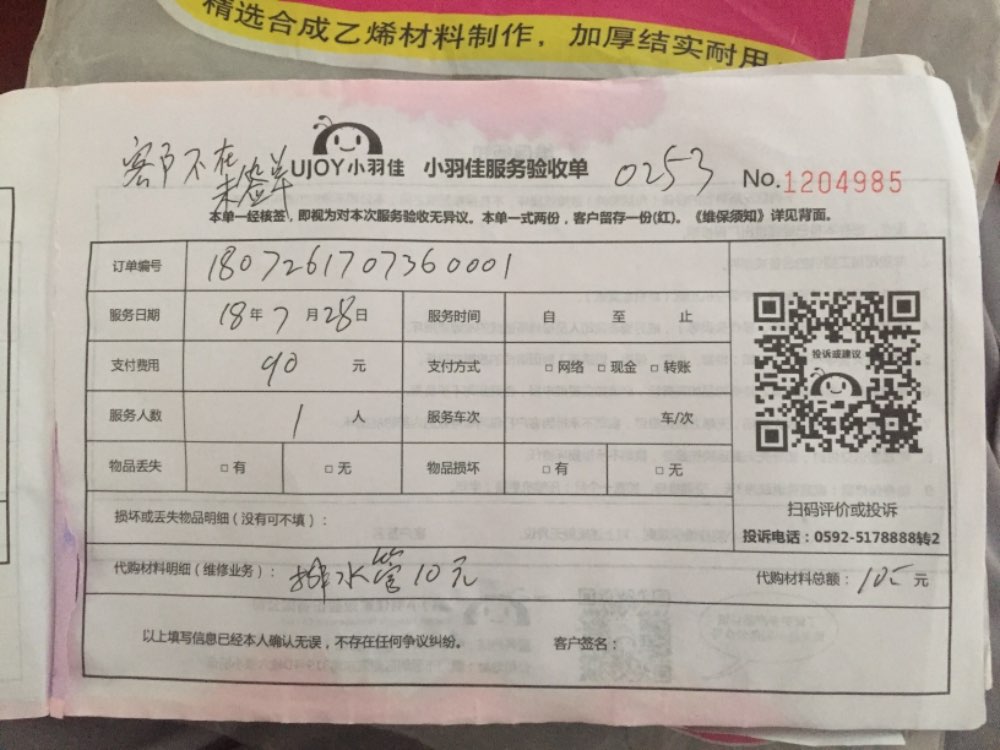 精选合成乙烯材料制作，加厚结实耐用
客户不在
未签单
UJOY小羽佳 小羽佳服务验收单 0253 No.1204985
本单一经核签，即视为对本次服务验收无异议。本单一式两份，客户留存一份(红)。《维保须知》详见背面。
订单编号 1807261707360001
服务日期 18年7月28日 服务时间 自 至 止
支付费用 90 元 支付方式 □网络 □现金 □转账
服务人数 1 人 服务车次 车/次
物品丢失 □有 □无 物品损坏 □有 □无
投诉或建议
扫码评价或投诉
投诉电话：0592-5178888转2
损坏或丢失物品明细（没有可不填）：
代购材料明细（维修业务）： 排水管10元 代购材料总额： 元
以上填写信息已经本人确认无误，不存在任何争议纠纷。 客户签名：